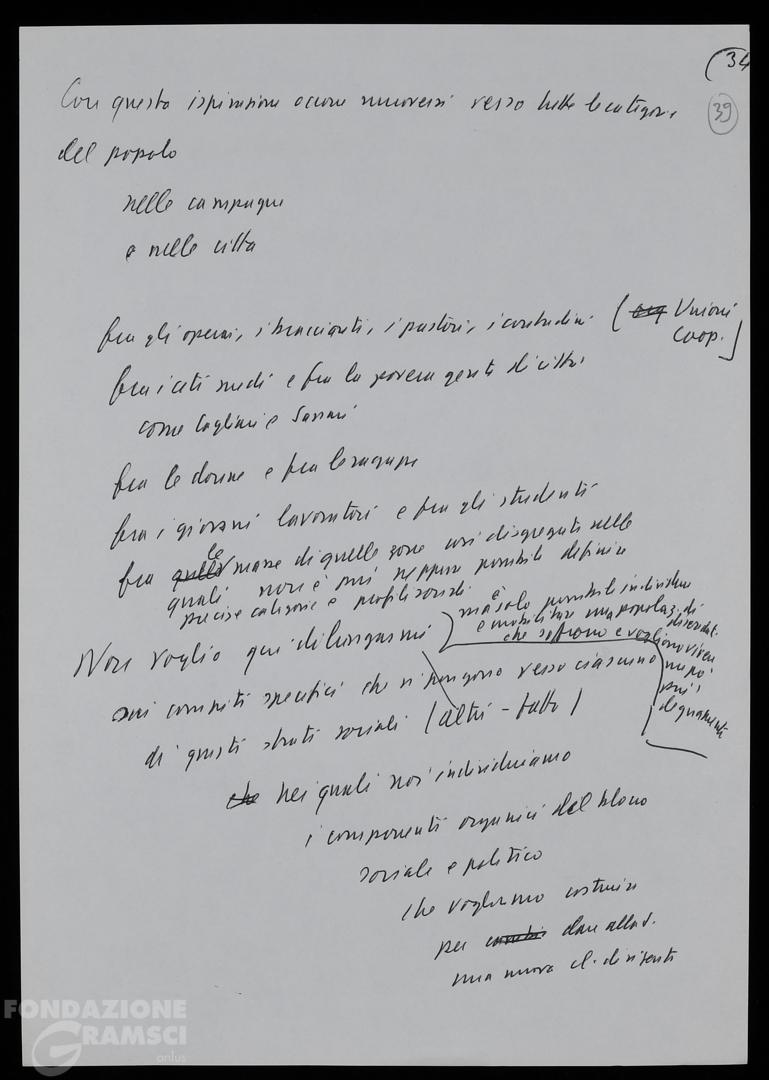 (34
39
Con questa ispirazione occorre muoversi verso tutte le categorie
del popolo
nelle campagne
e nelle città
fra gli operai, i braccianti, i pastori, i contadini ( Unioni
Coop. ]
fra i ceti medi e fra la povera gente di città
come Cagliari e Sassari
fra le donne e fra le ragazze
fra i giovani lavoratori e fra gli studenti
fra quelle le masse di quelle zone così disgregate nelle
quali non è più neppure possibile definire
precise categorie e profili sociali
ma solo è possibile individuare
e mobilitare una popolaz. di
diseredati
che soffrono e vogliono vivere
un po'
più
degnamente
Non voglio qui dilungarmi
sui compiti specifici che si pongono verso ciascuno
di questi strati sociali (altri - fatto)
che nei quali noi individuiamo
i componenti organici del blocco
sociale e politico
che vogliamo costruire
per dare alla S.
una nuova cl. dirigente
FONDAZIONE
GRAMSCI
onlus